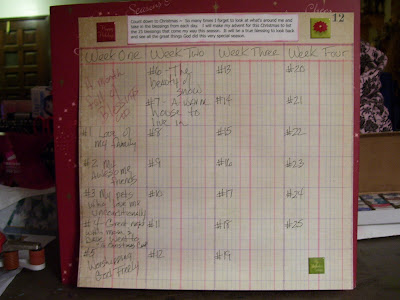 Count down to Christmas ~ So many times I forget to look at what's around me and
take in the blessings from each day. I will make my advent for this Christmas to list
the 25 blessings that come my way this season. It will be a true blessing to look back
and see all the great things God did this very special season.
12
Week One Week Two Week Three Week Four
A Month
full of
Blessings
#6 - The
beauty of
snow
#13
#20
#7 - A warm
house to
live in
#14
#21
#1 Love of
my family
#8
#15
#22
#2 My
awesome
friends
#9
#16
#23
#3 My pets
who love me
unconditionally
#10
#17
#24
#4 - Great
#11
#18
#25
#5
Worshiping
God Freely
#12
#19